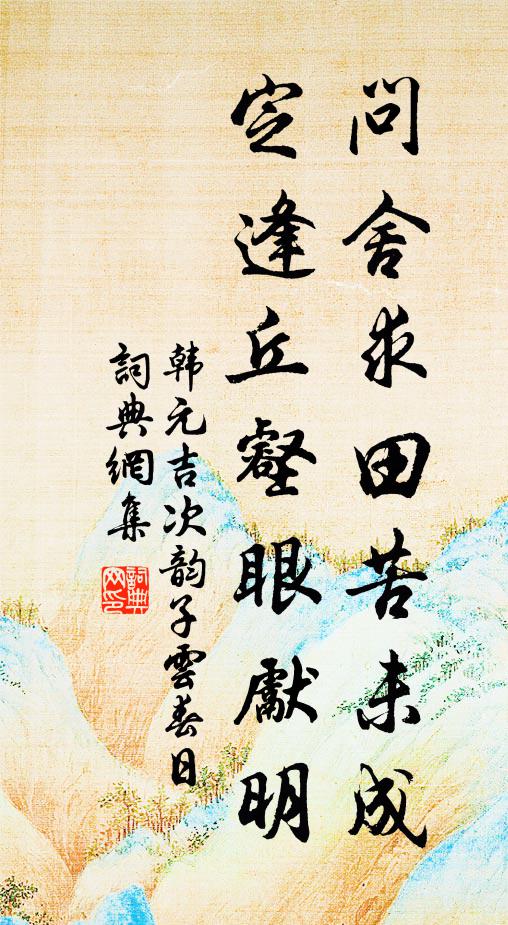 問舍求田苦未成
定逢丘壑眼獻明
韩元吉次韵子雲春日
詞典網集
詞典
网印